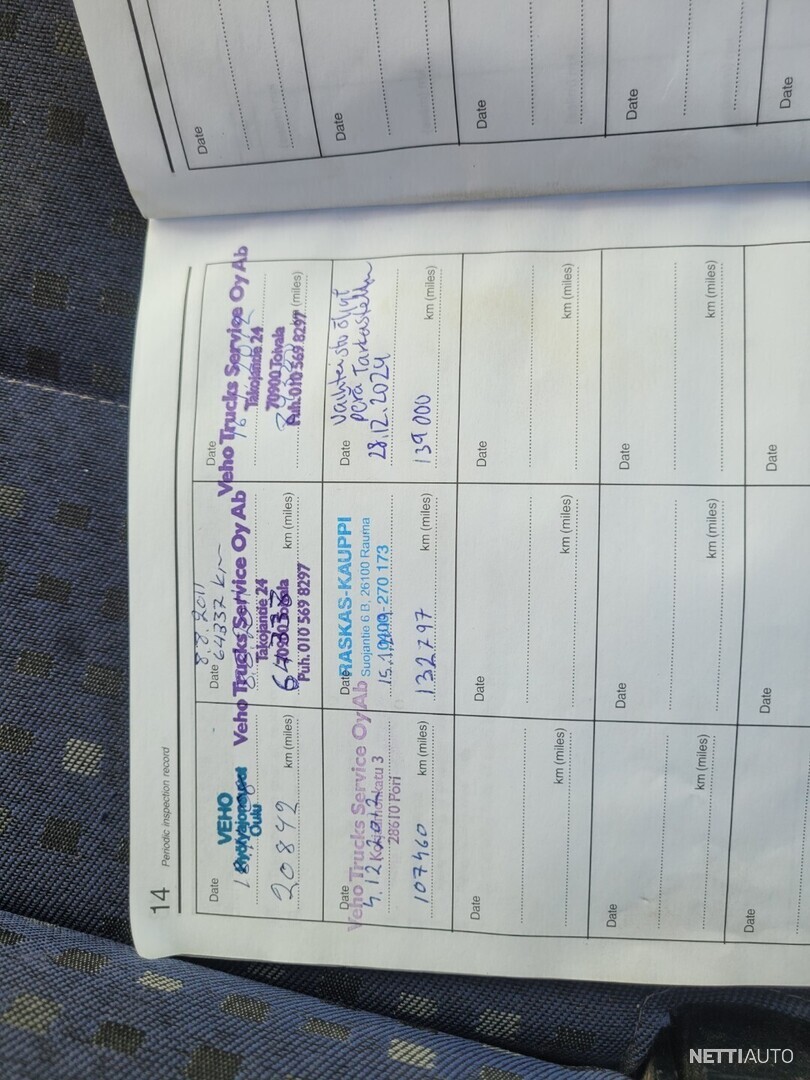 14
Periodic inspection record
Date
VEHO
Hyötyajoneuvot
Oulu
20842
km (miles)
8.8.2011
Date 64337 km
Veho Trucks Service Oy Ab
Takojantie 24
70900 Toivala
Puh. 010 569 8297
64338
km (miles)
Date
Veho Trucks Service Oy Ab
Takojantie 24
70900 Toivala
Puh. 010 569 8297
km (miles)
Date
Veho Trucks Service Oy Ab
28610 Pori
4.12.2012
107460
km (miles)
Date
RASKAS-KAUPPI
Suojantie 6 B, 26100 Rauma
0400-270 173
132797
km (miles)
Date
Vaihteisto öljyt
perä Tarkastettu
28.12.2024
139000
km (miles)
Date
km (miles)
Date
km (miles)
Date
km (miles)
Date
km (miles)
Date
km (miles)
Date
km (miles)
Date
Date
Date
Date
Date
Date
Date
Date
NETTIAUTO